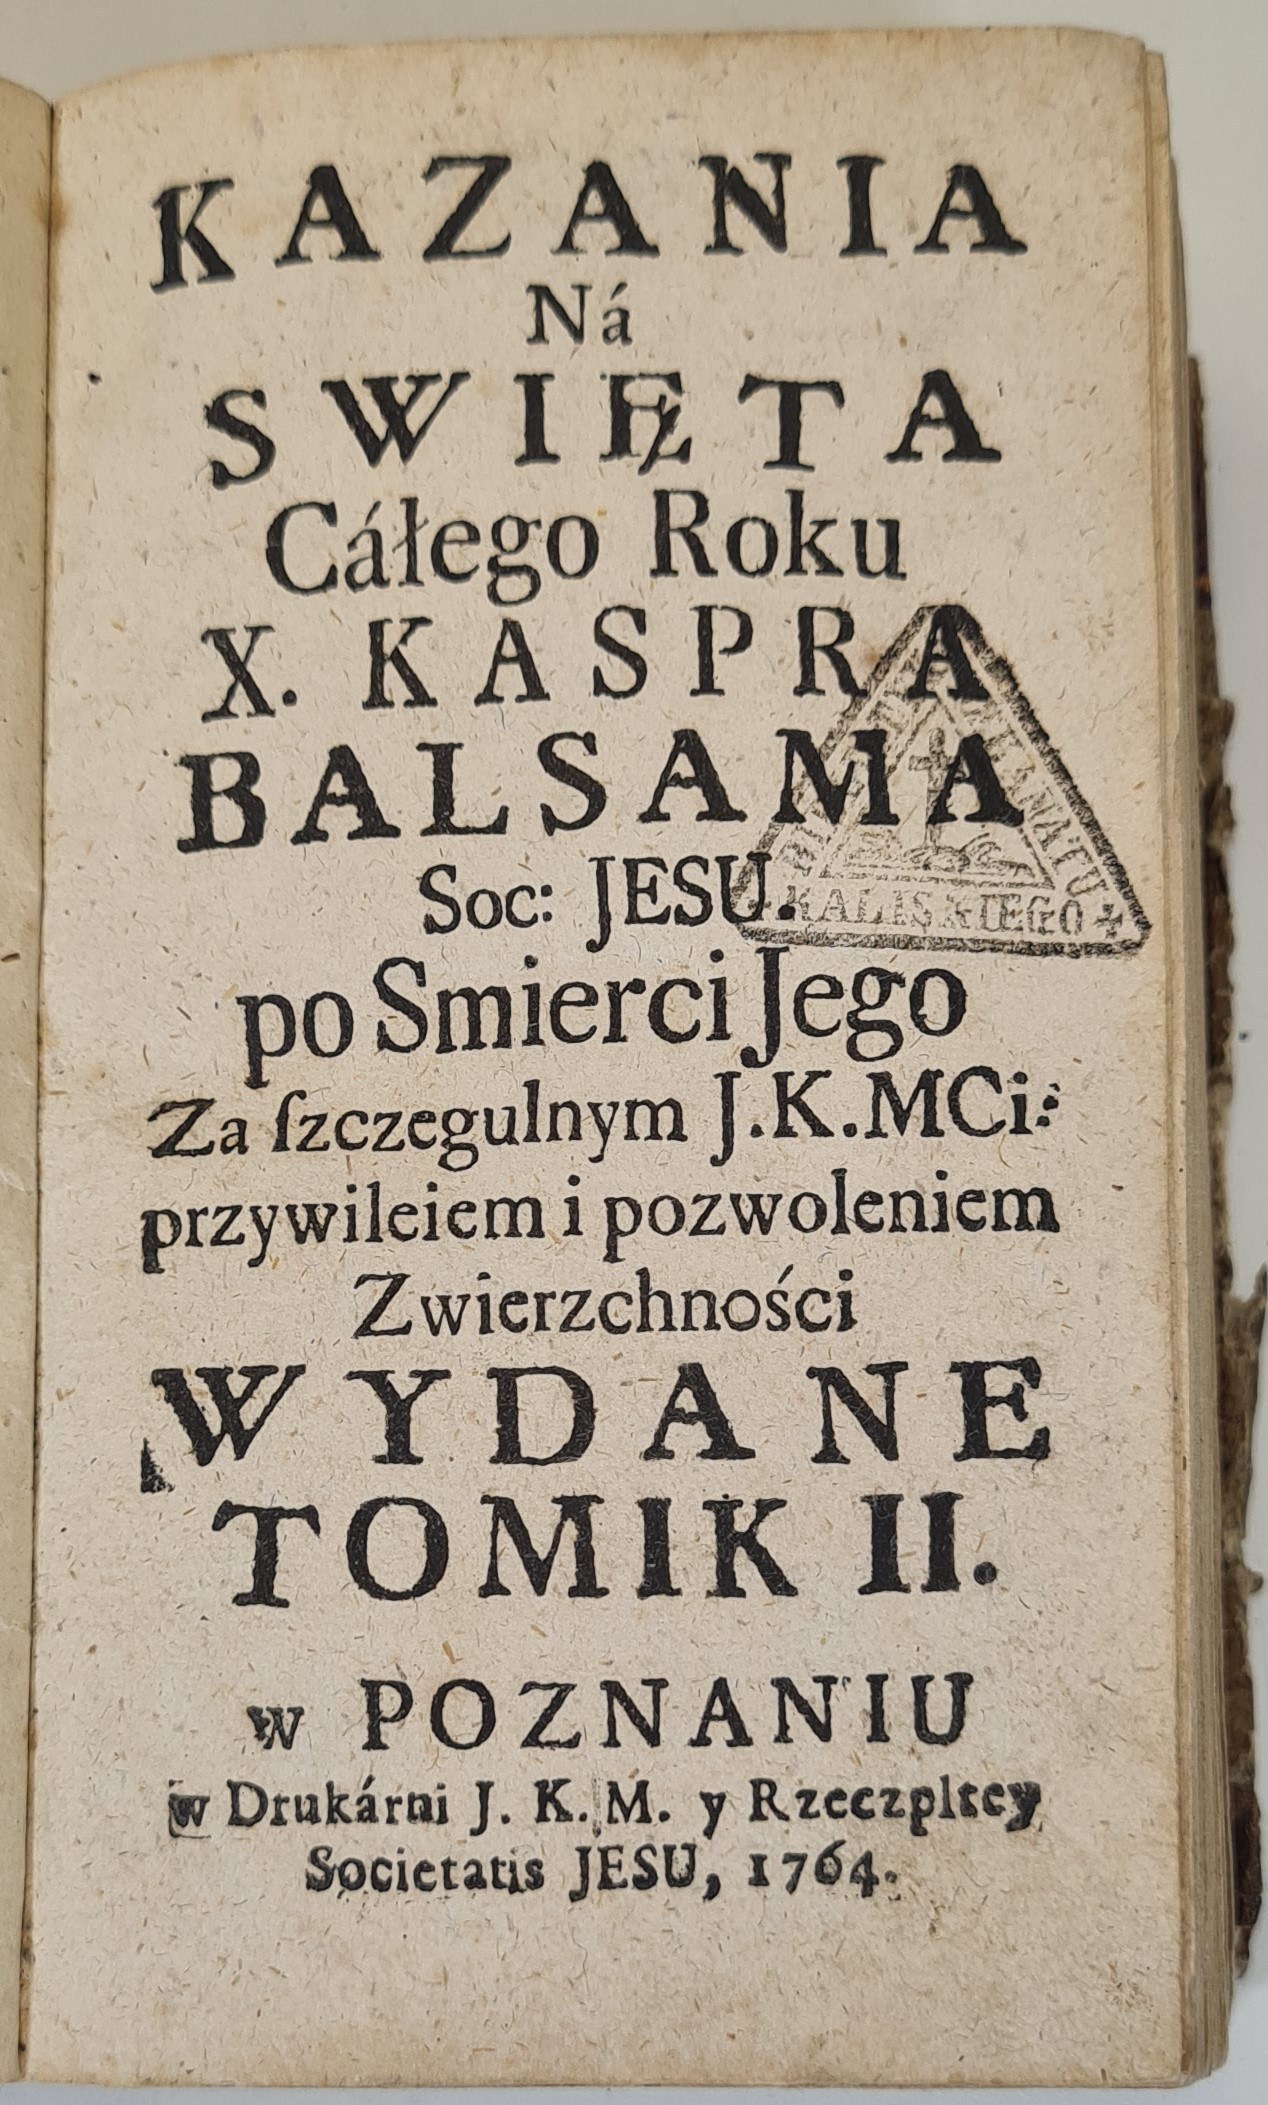 KAZANIA
Ná
SWIĘTA
Cáłego Roku
X. KASPRA
BALSAMA
Soc: JESU.
po Smierci Jego
Za ſzczegulnym J.K.MCi:
przywileiem i pozwoleniem
Zwierzchności
WYDANE
TOMIK II.
w POZNANIU
w Drukárni J. K. M. y Rzeczpltey
Societatis JESU, 1764.
KALISKIEGO